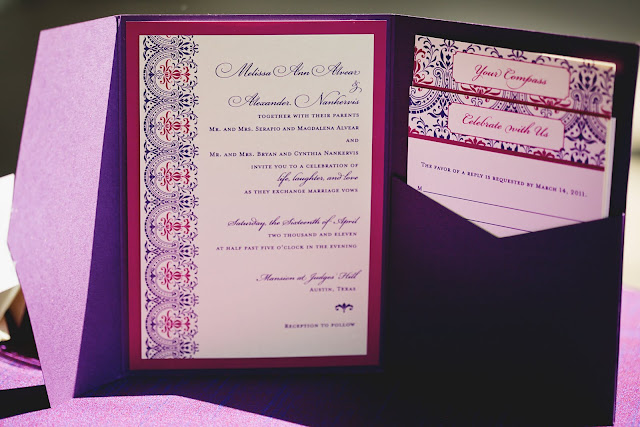 Melissa Ann Alvear
&
Alexander Nankervis
TOGETHER WITH THEIR PARENTS
MR. AND MRS. SERAPIO AND MAGDALENA ALVEAR
AND
MR. AND MRS. BRYAN AND CYNTHIA NANKERVIS
INVITE YOU TO A CELEBRATION OF
life, laughter, and love
AS THEY EXCHANGE MARRIAGE VOWS
Saturday, the Sixteenth of April
TWO THOUSAND AND ELEVEN
AT HALF PAST FIVE O'CLOCK IN THE EVENING
Mansion at Judges' Hill
AUSTIN, TEXAS
RECEPTION TO FOLLOW
Your Compass
Celebrate with Us
THE FAVOR OF A REPLY IS REQUESTED BY MARCH 14, 2011.
M